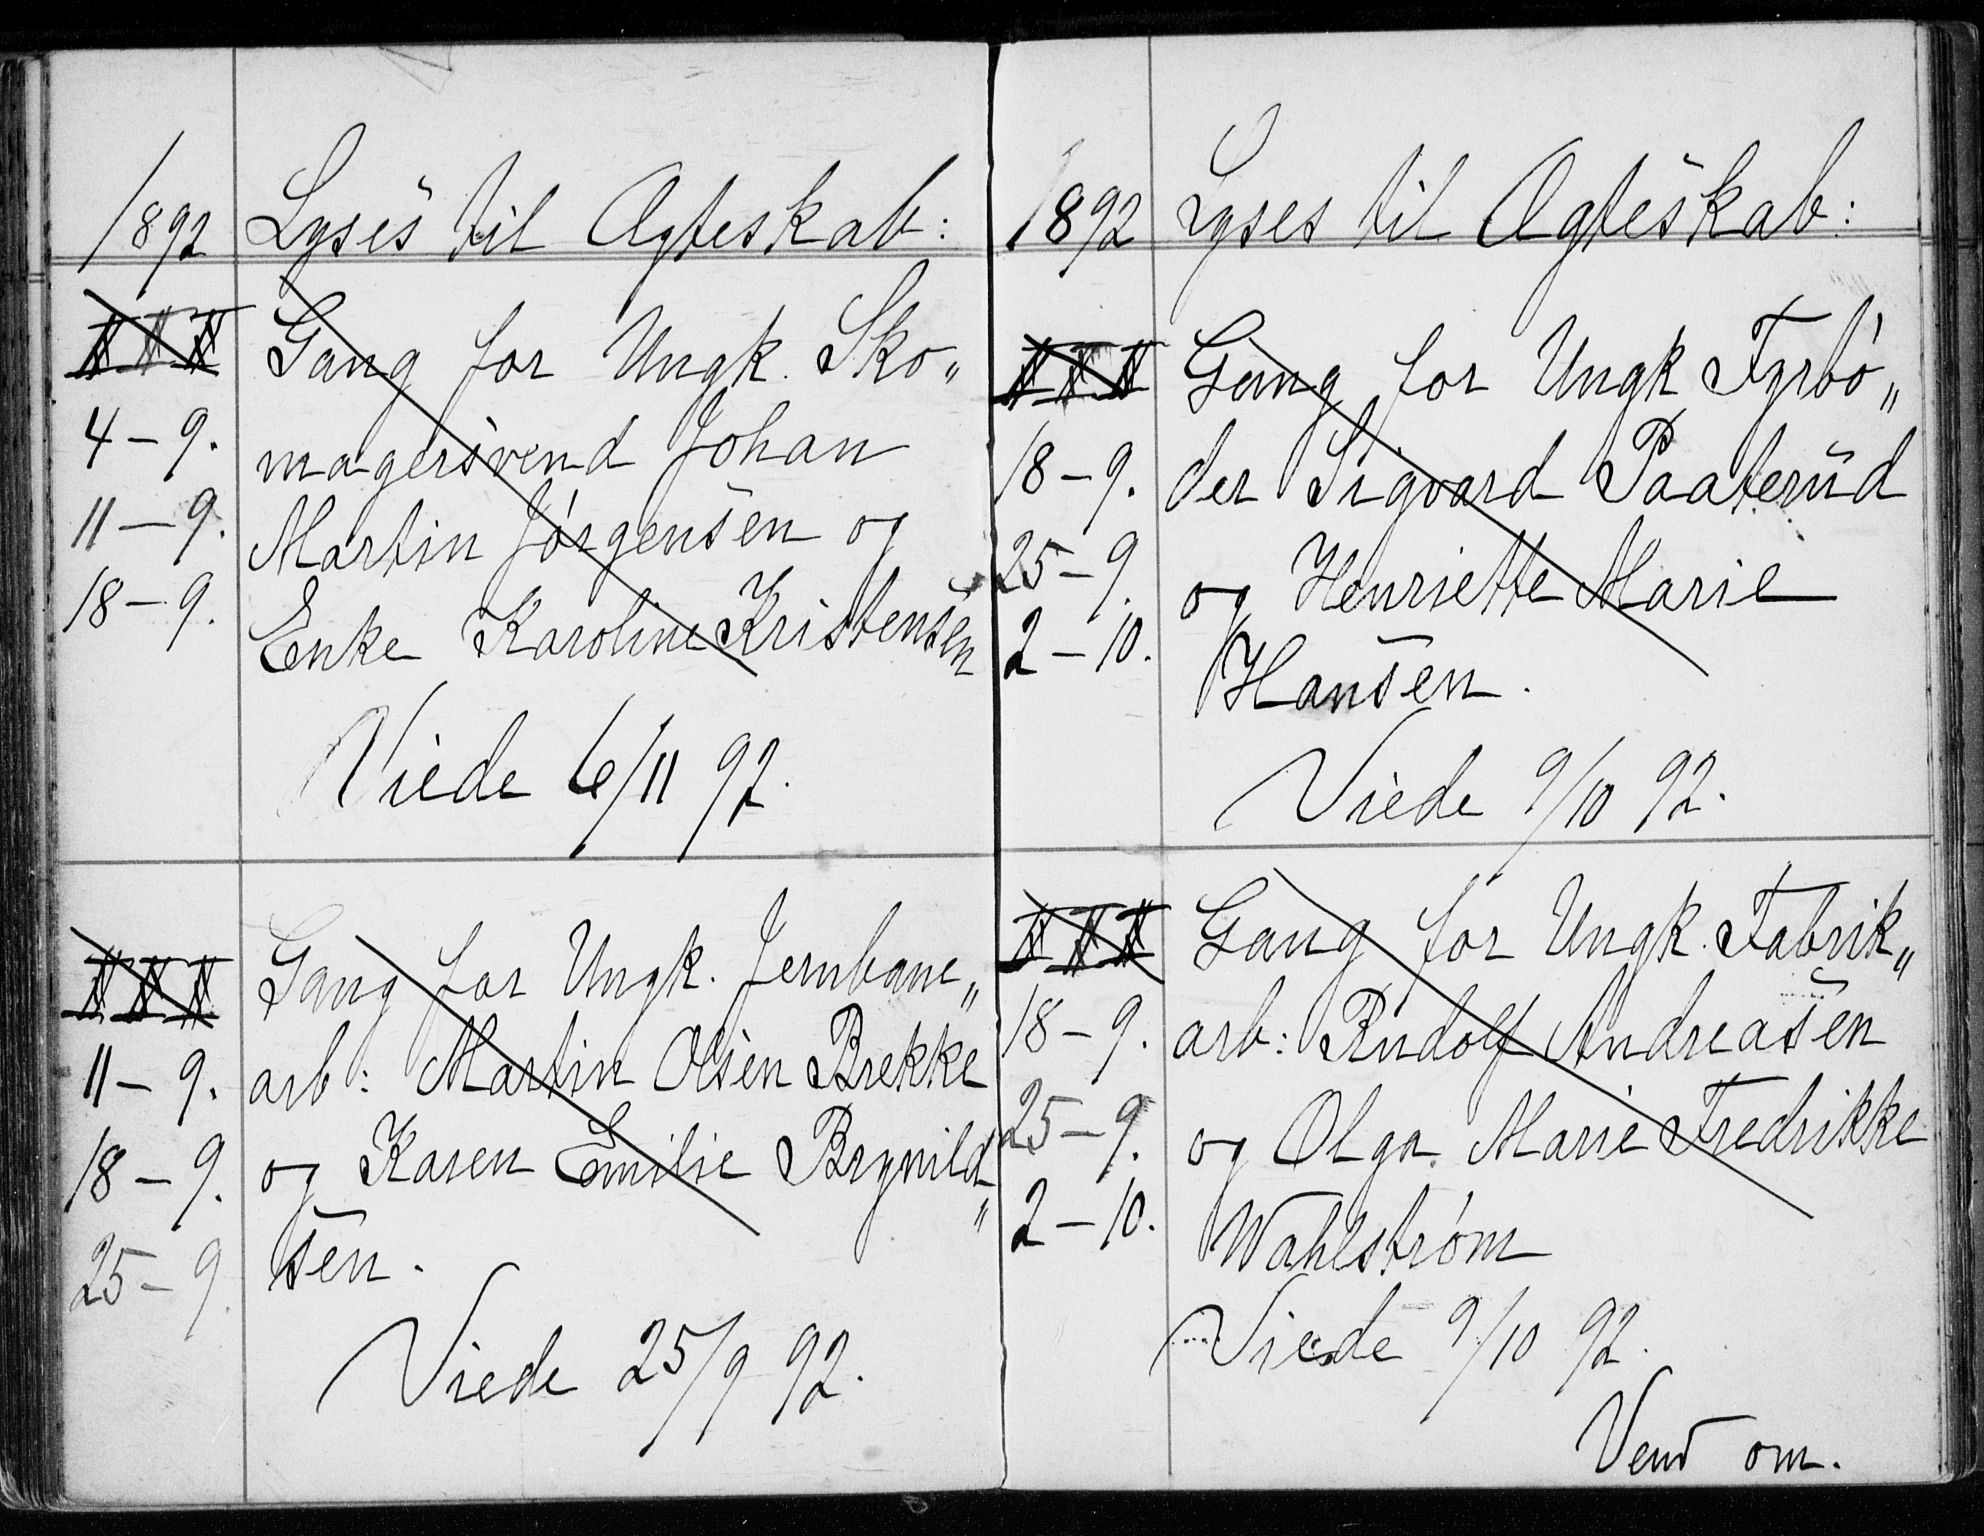 1892 Lyses til Ægteskab:
I I I Gang for Ungk. Sko„
4 – 9. magersvend Johan
11 – 9. Martin Jørgensen og
18 – 9. Enke Karoline Kristensen
Viede 6/11 92.
I I I Gang for Ungk. Jernbane„
11 – 9. arb: Martin Olsen Brekke
18 – 9. og Karen Emilie Brynild„
25 – 9. sen.
Viede 25/9 92.
1892 Lyses til Ægteskab:
I I I Gang for Ungk Fyrbø„
18 – 9. der Sigvard Paaterud
25 – 9. og Henriette Marie
2 – 10. Hansen.
Viede 9/10 92.
I I I Gang for Ungk. Fabrik„
18 – 9. arb: Rudolf Andreasen
25 – 9. og Olga Marie Fredrikke
2 – 10. Wahlstrøm
Viede 9/10 92.
Vend om.